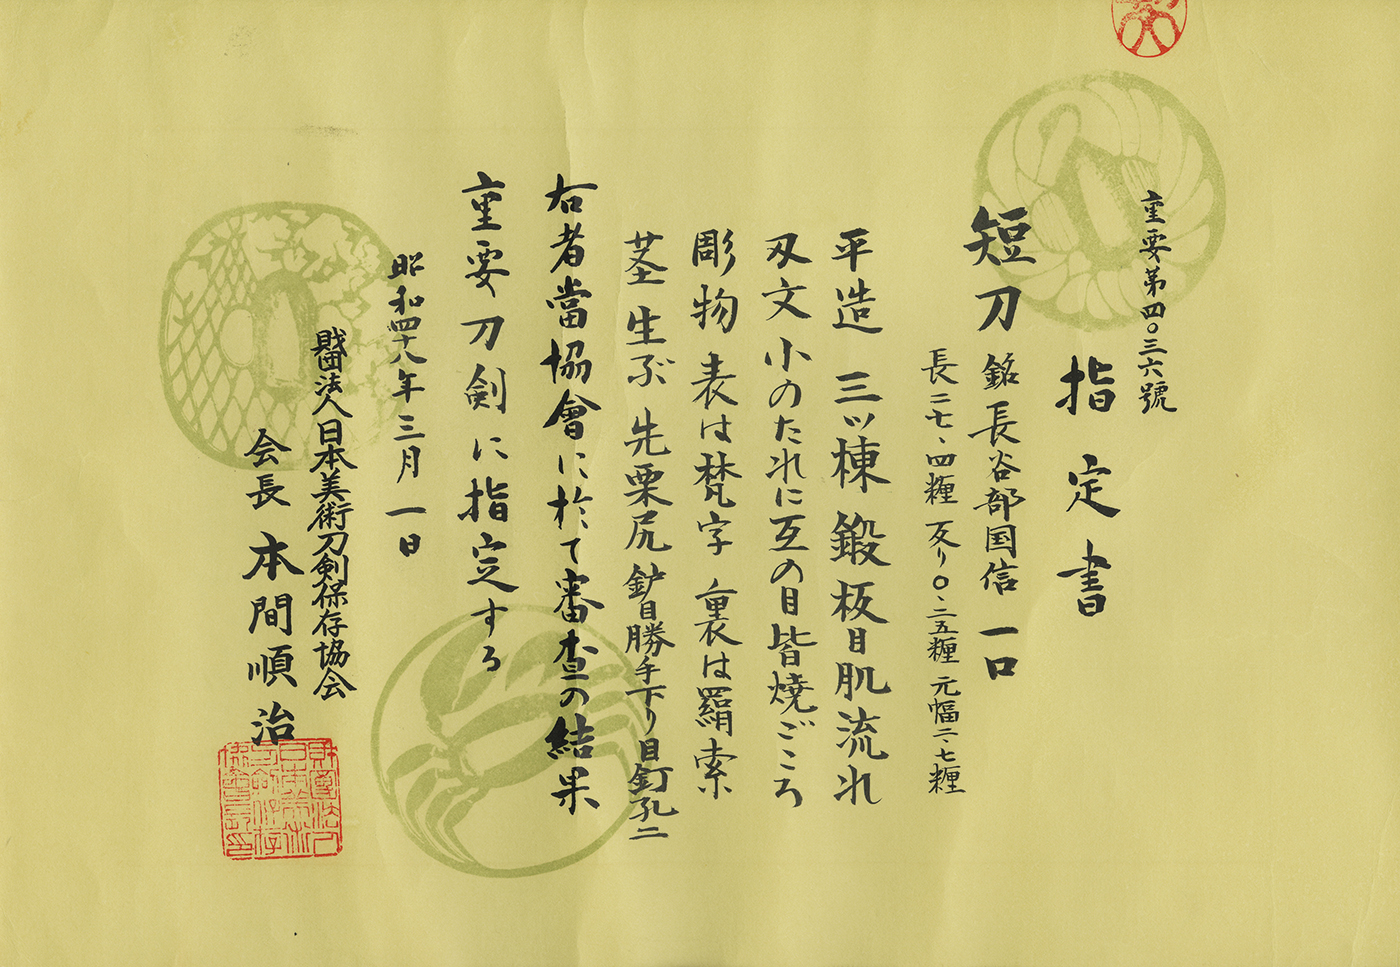 重要第四〇三六號
指定書
短刀 銘 長谷部国信 一口
長二七、四糎 反り〇、二五糎 元幅二、七糎
平造 三ッ棟 鍛板目肌流れ
刄文 小のたれに互の目皆焼ごころ
彫物 表は梵字 裏は羂索
茎 生ぶ 先栗尻 鈩目勝手下り 目釘孔二
右者當協會に於て審査の結果
重要刀剣に指定する
昭和四十八年三月一日
財団法人日本美術刀剣保存協会
会長 本間順治